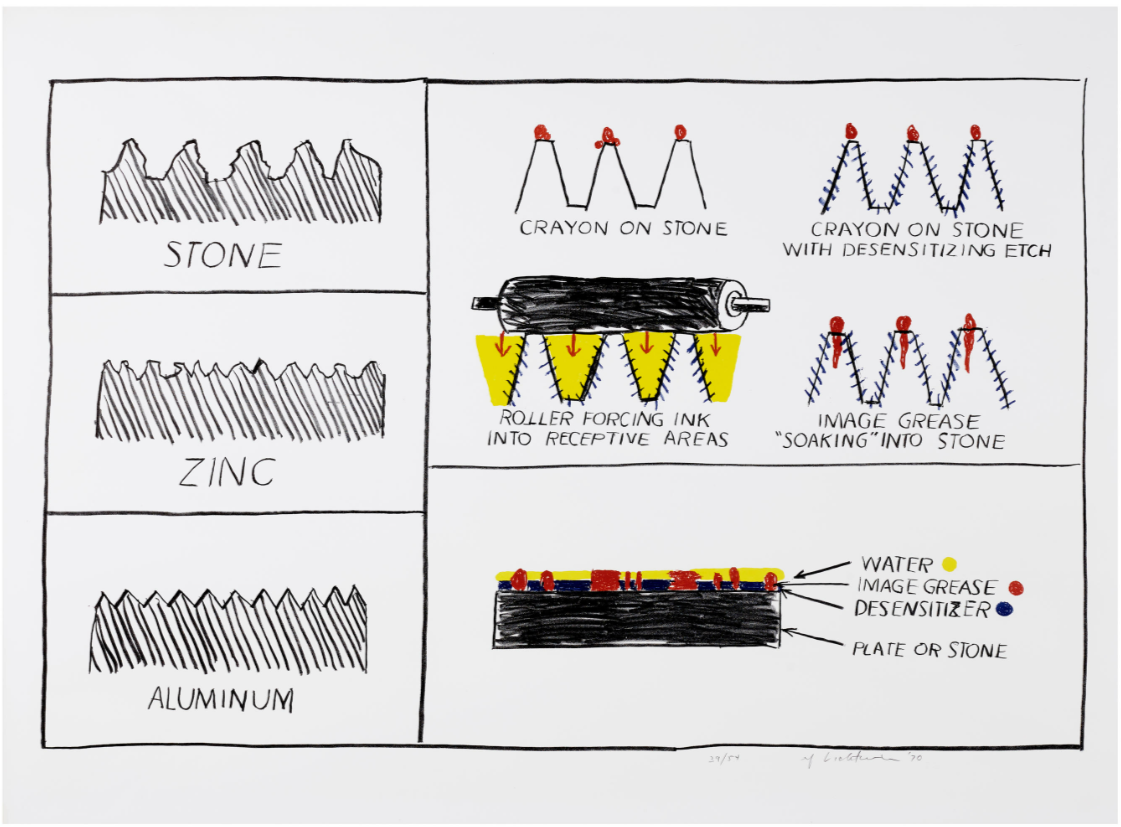 STONE
ZINC
ALUMINUM
CRAYON ON STONE
CRAYON ON STONE
WITH DESENSITIZING ETCH
ROLLER FORCING INK
INTO RECEPTIVE AREAS
IMAGE GREASE
"SOAKING" INTO STONE
WATER
IMAGE GREASE
DESENSITIZER
PLATE OR STONE
29/54
'70